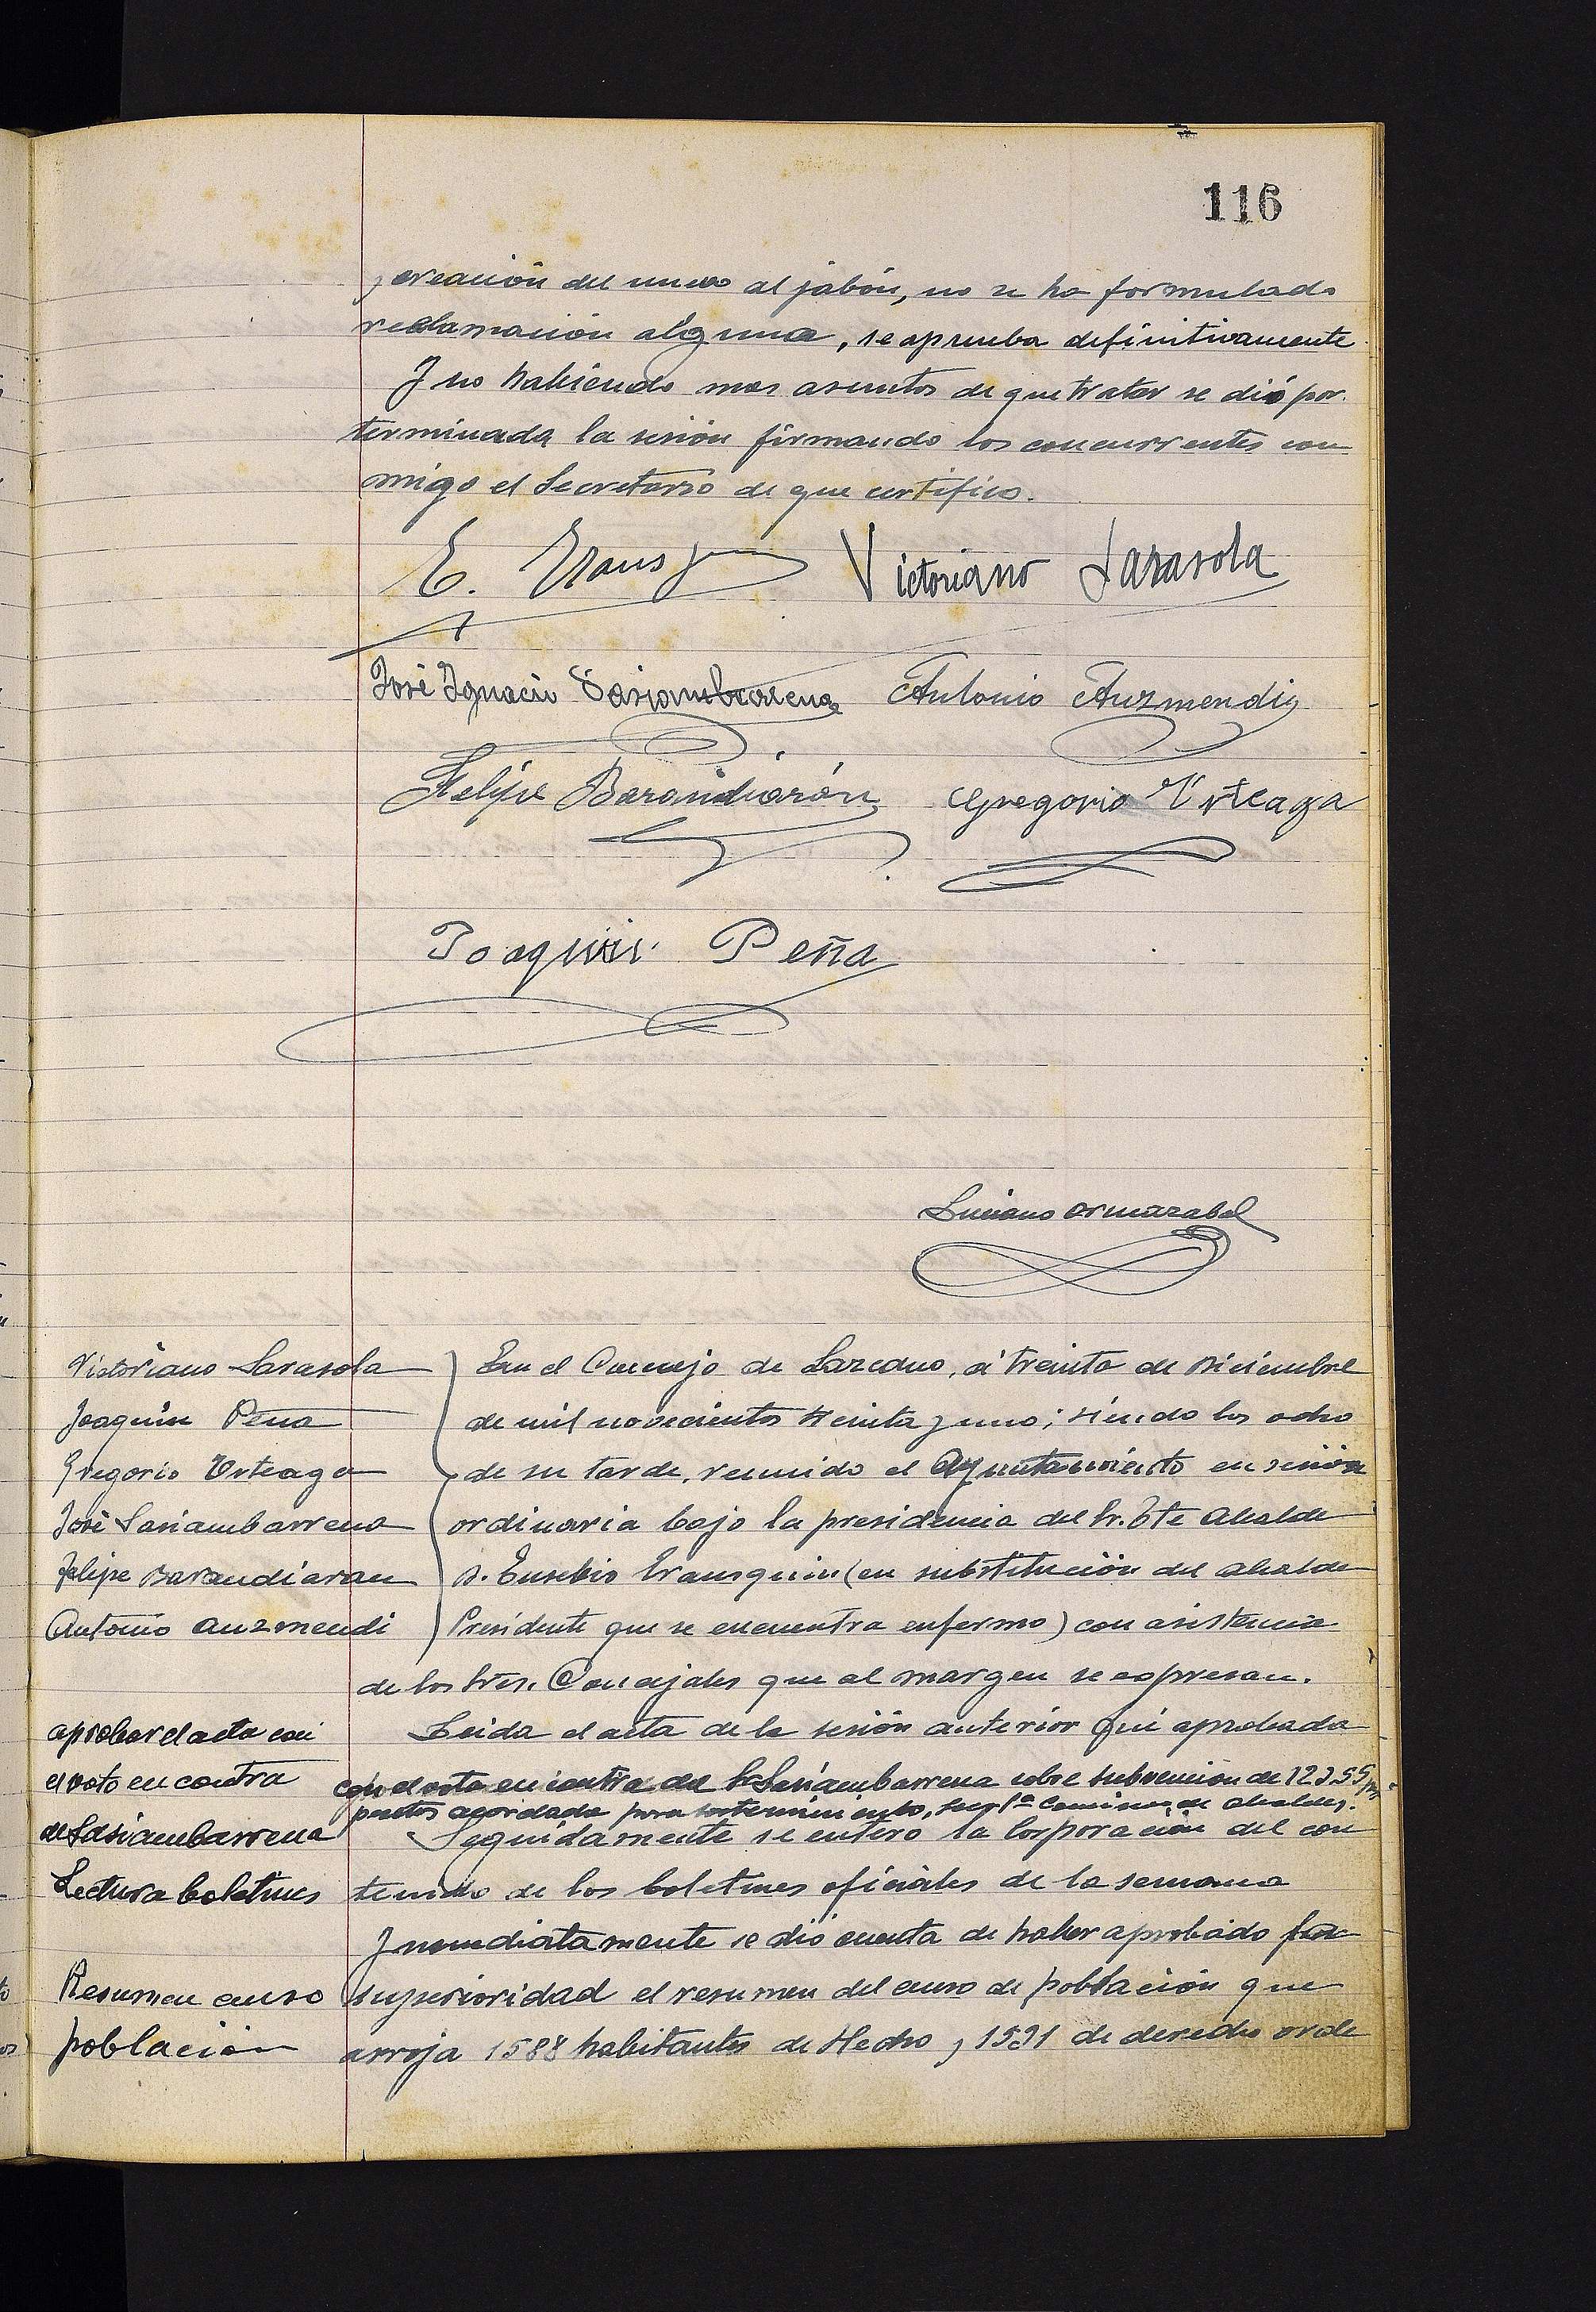 116
y creación del nuevo al jabón, no se ha formulado
reclamación alguna, se aprueba definitivamente
Y no habiendo mas asuntos de que tratar se dió por
terminada la sesión firmando los concurrentes con
migo el Secretario de que certifico.
E. Victoriano Sarasola
José Ignacio Sasiambarrena Antonio Auzmendi
Felipe Barandiarán Gregorio Urteaga
Joaquin Peña
Luciano Ormazabal
Victoriano Sarasola
Joaquin Pena
Gregorio Urteaga
José Sasiambarrena
Felipe Barandiaran
Antonio Auzmendi
En el Concejo de Lazcano, á treinta de Diciembre
de mil novecientos treinta y uno; siendo las ocho
de su tarde, reunido el Ayuntamiento en sesión
ordinaria bajo la presidencia del Sr. Tte Alcalde
D. Eusebio Iransquin (en substitución del alcalde
Presidente que se encuentra enfermo) con asistencia
de los Sres. Concejales que al margen se expresan.
aprobar el acta con
el voto en contra
de Sasiambarrena
Leida el acta de la sesión anterior fué aprobada
con el voto en contra del Sr Sasiambarrena sobre subvención de
acordada para
Seguidamente se enteró la Corporación del con
Lectura boletines
tenido de los boletines oficiales de la semana
Inmediatamente se dió cuenta de haber aprobado
Resumen censo
población
superioridad el resumen del censo de población que
arroja 1588 habitantes de Hecho y 1591 de derecho